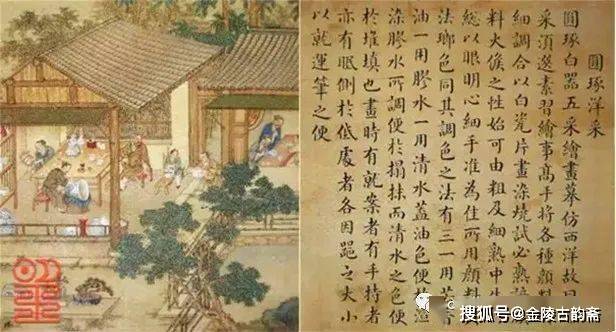 圓琢洋采
圓琢白器五采繪畫摹仿西洋故曰
采湏選素習繪事髙手將各種顔料
細調合以白瓷片畫染燒試必熟諳
料火候之性始可由粗及細熟中生
總以眼明心細手准為佳所用顔料
法瑯色同其調色之法有三一用芸
油一用膠水一用清水蓋油色便於
染膠水所調便於搨抹而清水之色便
於堆填也畫時有就案者有手持者
亦有眠側於低處者各因器之大小
以就運筆之便
搜狐号@金陵古韵斋